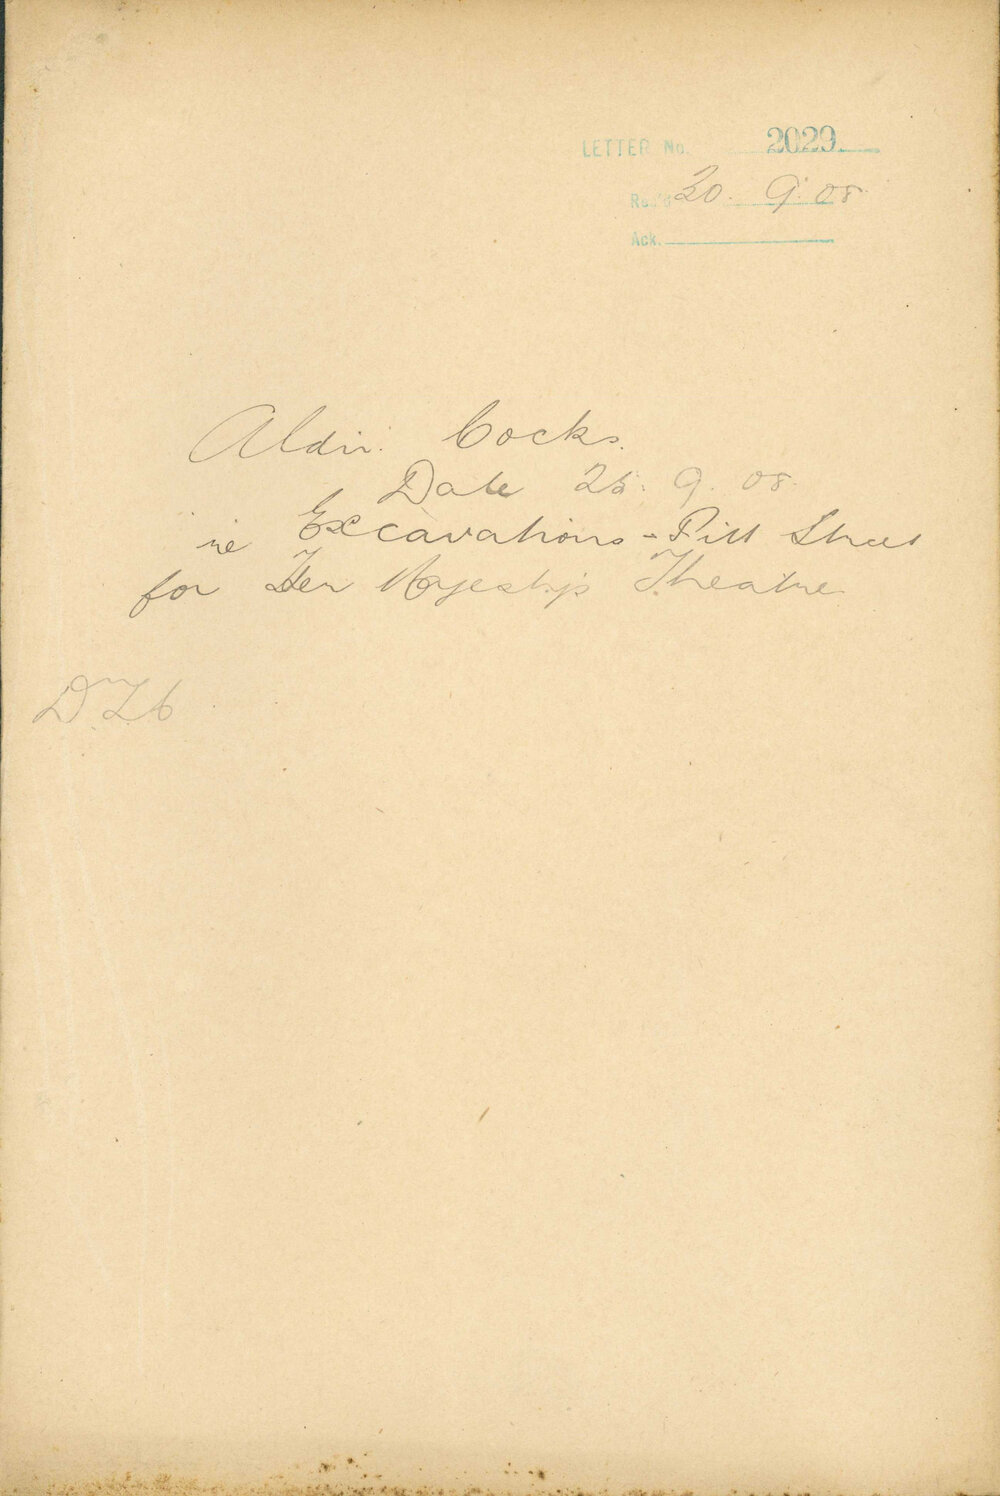 LETTER No. 2029
Rec'd 30. 9. 08
Ack.
Aldn. Cocks.
Date 25. 9. 08.
re Excavations - Pitt Street
for Her Majesty's Theatre